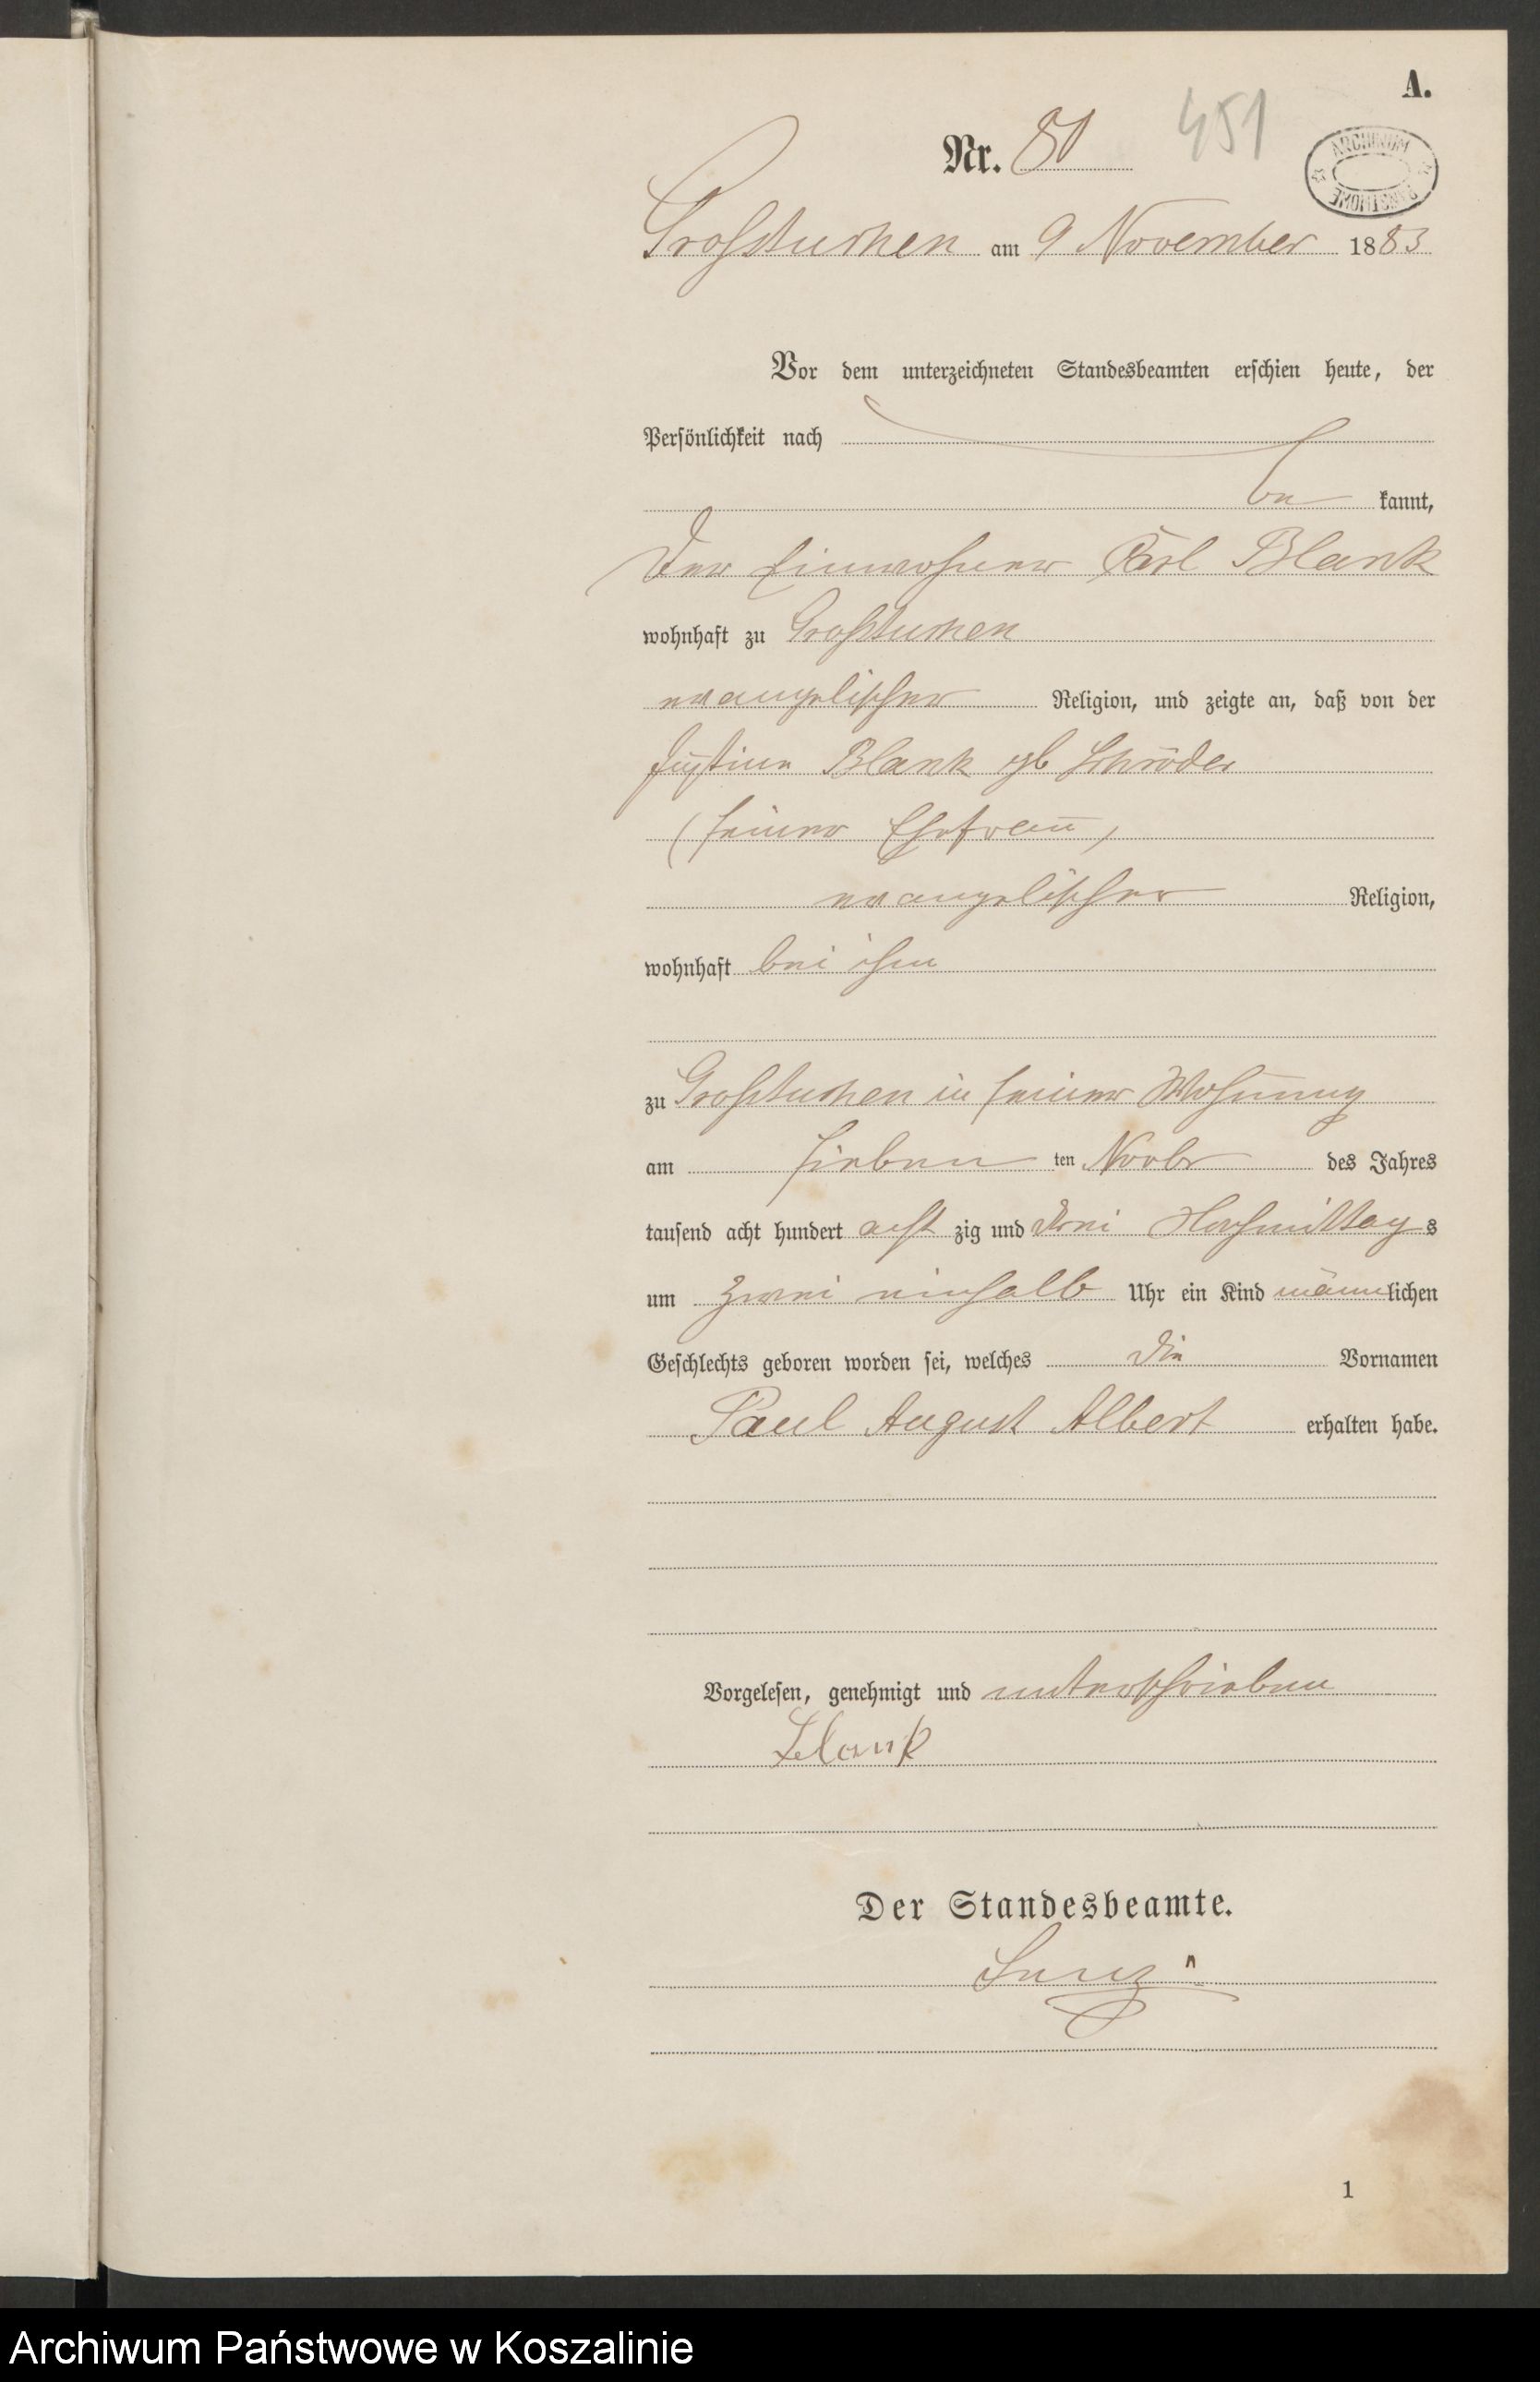 A.
Nr. 80 451
ARCHIWUM PAŃSTWOWE
Großtuchen am 9 November 1883
Vor dem unterzeichneten Standesbeamten erschien heute, der
Persönlichkeit nach
be kannt,
der Einwohner Carl Blank
wohnhaft zu Großtuchen
evangelischer Religion, und zeigte an, daß von der
Justine Blank gb Schröder
(seiner Ehefrau)
evangelischer Religion,
wohnhaft bei ihm
zu Großtuchen in seiner Wohnung
am sieben ten Novbr des Jahres
tausend acht hundert acht zig und drei Nachmittag s
um zwei einhalb Uhr ein Kind männlichen
Geschlechts geboren worden sei, welches die Vornamen
Paul August Albert erhalten habe.
Vorgelesen, genehmigt und unterschrieben
Blank
Der Standesbeamte.
1
Archiwum Państwowe w Koszalinie